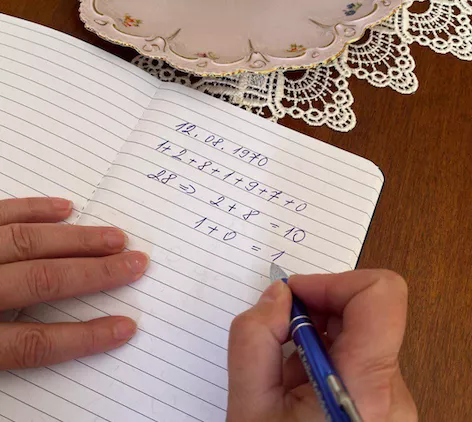 12.08.1970
1+2+8+1+9+7+0
28 ⇒ 2+8 = 10
1+0 = 1